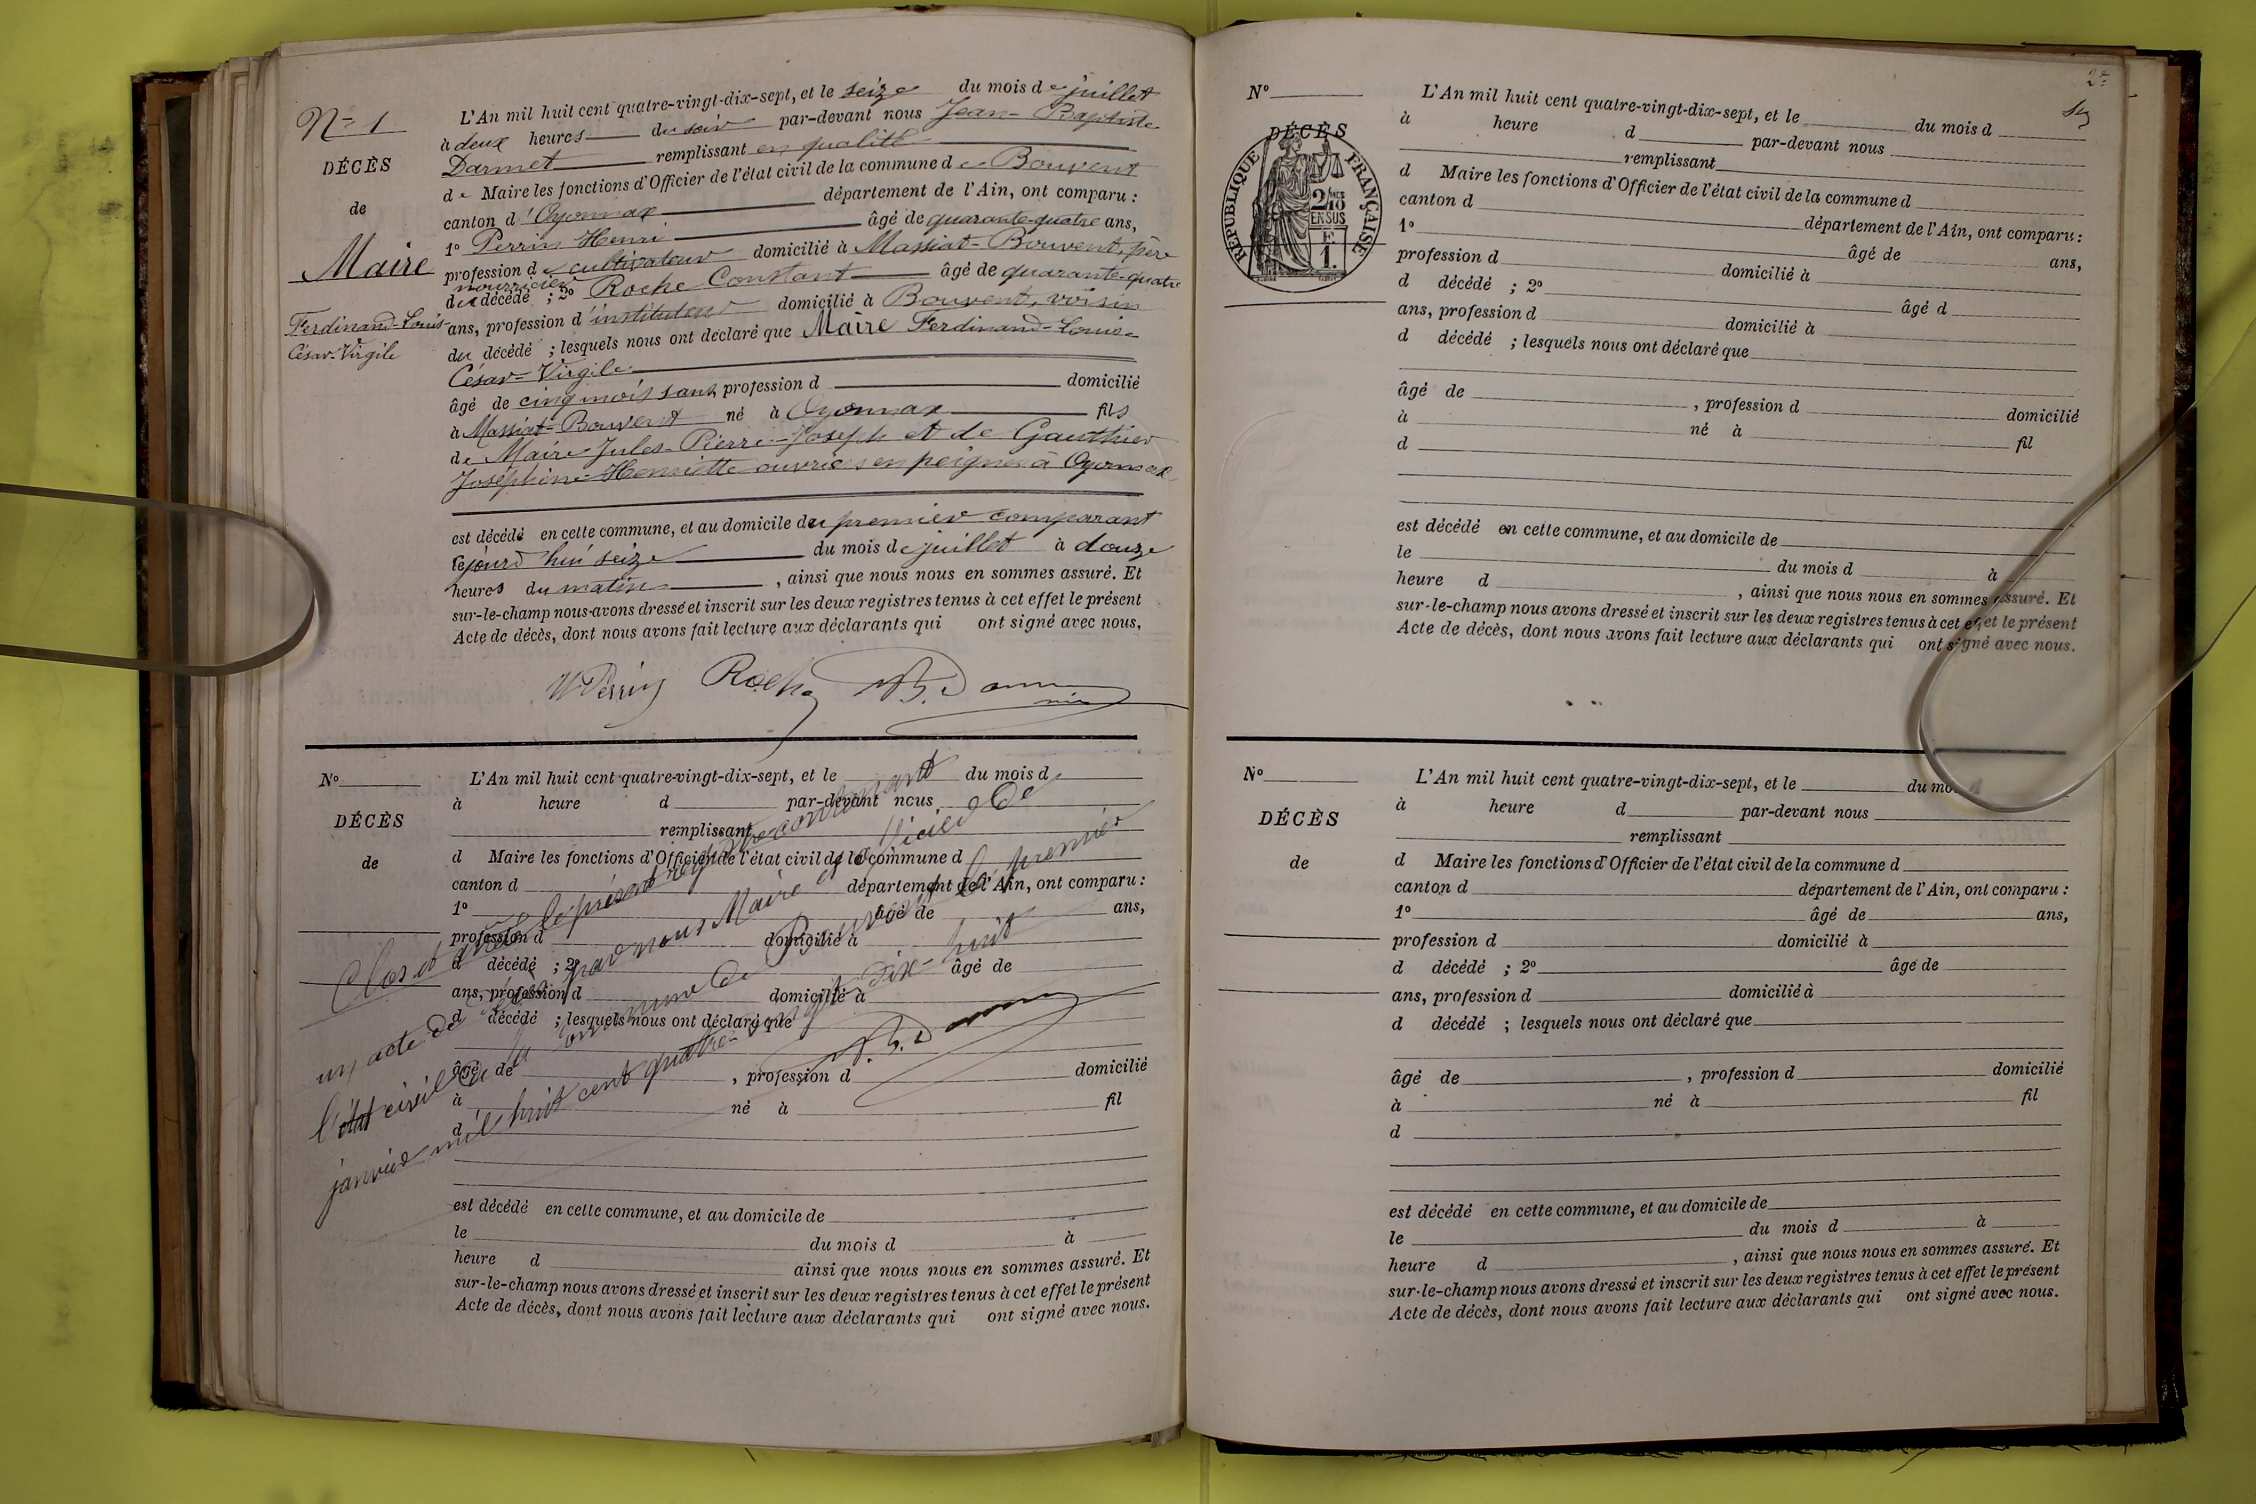 N° 1
DÉCÈS
de
Maire
Ferdinand-Louis
César-Virgile
L'An mil huit cent quatre-vingt-dix-sept, et le seize du mois de juillet
à deux heures du soir par-devant nous Jean-Baptiste
Darmet remplissant en qualité
de Maire les fonctions d'Officier de l'état civil de la commune de Bouvent
canton d'Oyonnax département de l'Ain, ont comparu :
1° Perrin Henri âgé de quarante-quatre ans,
profession de cultivateur domicilié à Massiat-Bouvent, père
nourricier
du décédé ; 2° Roche Constant âgé de quarante-quatre
ans, profession d'instituteur domicilié à Bouvent, voisin
du décédé ; lesquels nous ont déclaré que Maire Ferdinand-Louis-
César-Virgile
âgé de cinq mois sans profession d domicilié
à Massiat-Bouvent né à Oyonnax fils
de Maire Jules-Pierre-Joseph et de Gauthier
Joséphine-Henriette ouvriers en peignes à Oyonnax
est décédé en cette commune, et au domicile du premier comparant
cejourd'hui seize du mois de juillet à douze
heures du matin , ainsi que nous nous en sommes assuré. Et
sur-le-champ nous avons dressé et inscrit sur les deux registres tenus à cet effet le présent
Acte de décès, dont nous avons fait lecture aux déclarants qui ont signé avec nous.
H Perrin Roche JB. Darmet
N°
DÉCÈS
de
L'An mil huit cent quatre-vingt-dix-sept, et le du mois d
à heure d par-devant nous
remplissant
d Maire les fonctions d'Officier de l'état civil de la commune d
canton d département de l'Ain, ont comparu :
1° âgé de ans,
profession d domicilié à
d décédé ; 2° âgé de
ans, profession d domicilié à
d décédé ; lesquels nous ont déclaré que
âgé de , profession d domicilié
à né à fil
d
est décédé en cette commune, et au domicile de
le du mois d à
heure d ainsi que nous nous en sommes assuré. Et
sur-le-champ nous avons dressé et inscrit sur les deux registres tenus à cet effet le présent
Acte de décès, dont nous avons fait lecture aux déclarants qui ont signé avec nous.
Clos et arrêté le présent registre contenant
un acte de décès par nous Maire et officier de
l'état civil de la commune de Bouvent le premier
janvier mil huit cent quatre-vingt-dix-huit
J.B. Darmet
2e
N°
DÉCÈS
RÉPUBLIQUE FRANÇAISE
2/10 EN SUS
F 1.
L'An mil huit cent quatre-vingt-dix-sept, et le du mois d
à heure d par-devant nous
remplissant
d Maire les fonctions d'Officier de l'état civil de la commune d
canton d département de l'Ain, ont comparu :
1° âgé de ans,
profession d domicilié à
d décédé ; 2° âgé d
ans, profession d domicilié à
d décédé ; lesquels nous ont déclaré que
âgé de , profession d domicilié
à né à fil
d
est décédé en cette commune, et au domicile de
le du mois d à
heure d , ainsi que nous nous en sommes assuré. Et
sur-le-champ nous avons dressé et inscrit sur les deux registres tenus à cet effet le présent
Acte de décès, dont nous avons fait lecture aux déclarants qui ont signé avec nous.
N°
DÉCÈS
de
L'An mil huit cent quatre-vingt-dix-sept, et le du mo
à heure d par-devant nous
remplissant
d Maire les fonctions d'Officier de l'état civil de la commune d
canton d département de l'Ain, ont comparu :
1° âgé de ans,
profession d domicilié à
d décédé ; 2° âgé de
ans, profession d domicilié à
d décédé ; lesquels nous ont déclaré que
âgé de , profession d domicilié
à né à fil
d
est décédé en cette commune, et au domicile de
le du mois d à
heure d , ainsi que nous nous en sommes assuré. Et
sur-le-champ nous avons dressé et inscrit sur les deux registres tenus à cet effet le présent
Acte de décès, dont nous avons fait lecture aux déclarants qui ont signé avec nous.